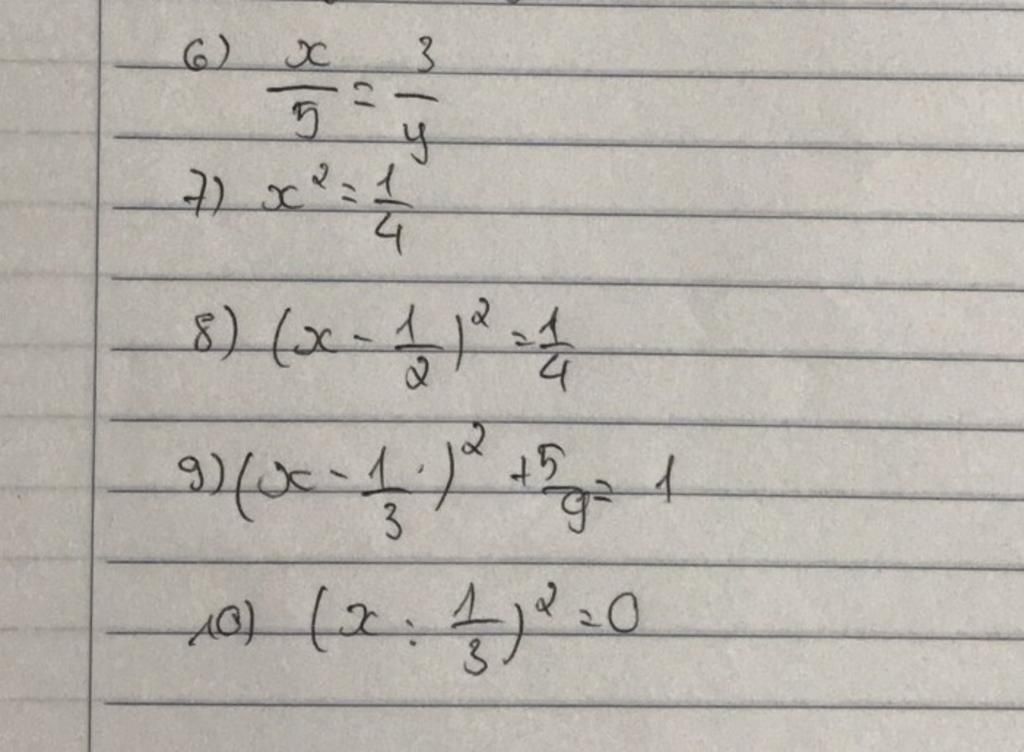 6) x/5 = 3/y
7) x² = 1/4
8) (x - 1/2)² = 1/4
9) (x - 1/3 .)² + 5/9 = 1
10) (x : 1/3)² = 0